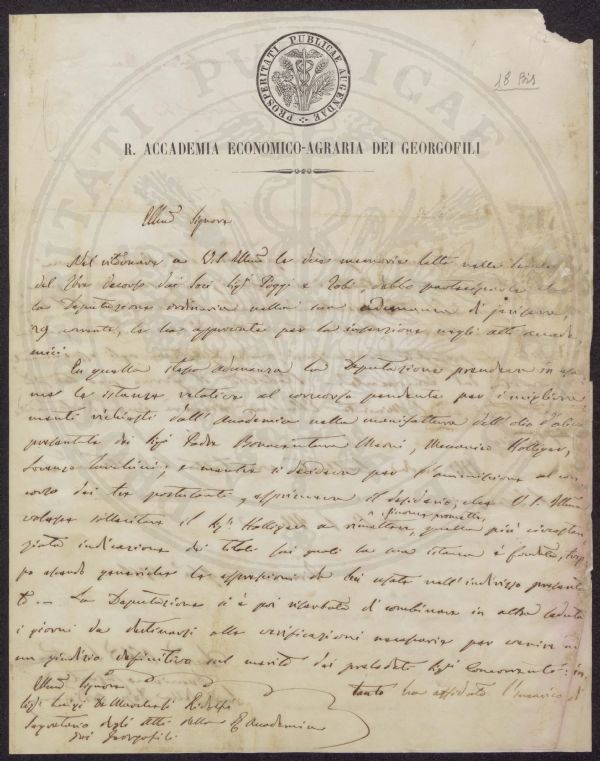 PROSPERITATI PUBLICAE AUGENDAE
18 Bis
R. ACCADEMIA ECONOMICO-AGRARIA DEI GEORGOFILI
Illmo Signore
Nel ritornare a V.S. Illma le due memorie lette nella seduta
del decorso dai Soci Sigri Poggi e debbo parteciparle che
la Deputazione ordinaria nella sua adunanza di jeri sera,
29 corrente, le ha approvate per la inserzione negli atti accade
mici.
In quella stessa adunanza la Deputazione prendeva in esa
me le istanze relative al concorso pendente per i migliora
menti richiesti dall'Accademia nella manifattura dell'olio d'oliva
presentate dai Sigri Padre Bonaventura Meccanico
Lorenzo e mentre si decideva per l'ammissione al con
corso dei tre postulanti, esprimeva il desiderio, che V.S. Illma
volesse sollecitare il Sigr a rimettere, quella più circostan
ziata indicazione dei titoli sui quali la sua istanza è fondata,
po essendo generiche le espressioni da lui usate nell'indirizzo presenta
to. — La Deputazione si è poi riserbata di combinare in altra seduta
i giorni da destinarsi alle verificazioni necessarie per venire ad
un giudizio definitivo sul merito dei prelodati Sigri Concorrenti: in
tanto ha affidato l'incarico di
Illmo Signore
Sigr Luigi De Marchesi Ridolfi
Segretario degli Atti della R. Accademia
dei Georgofili